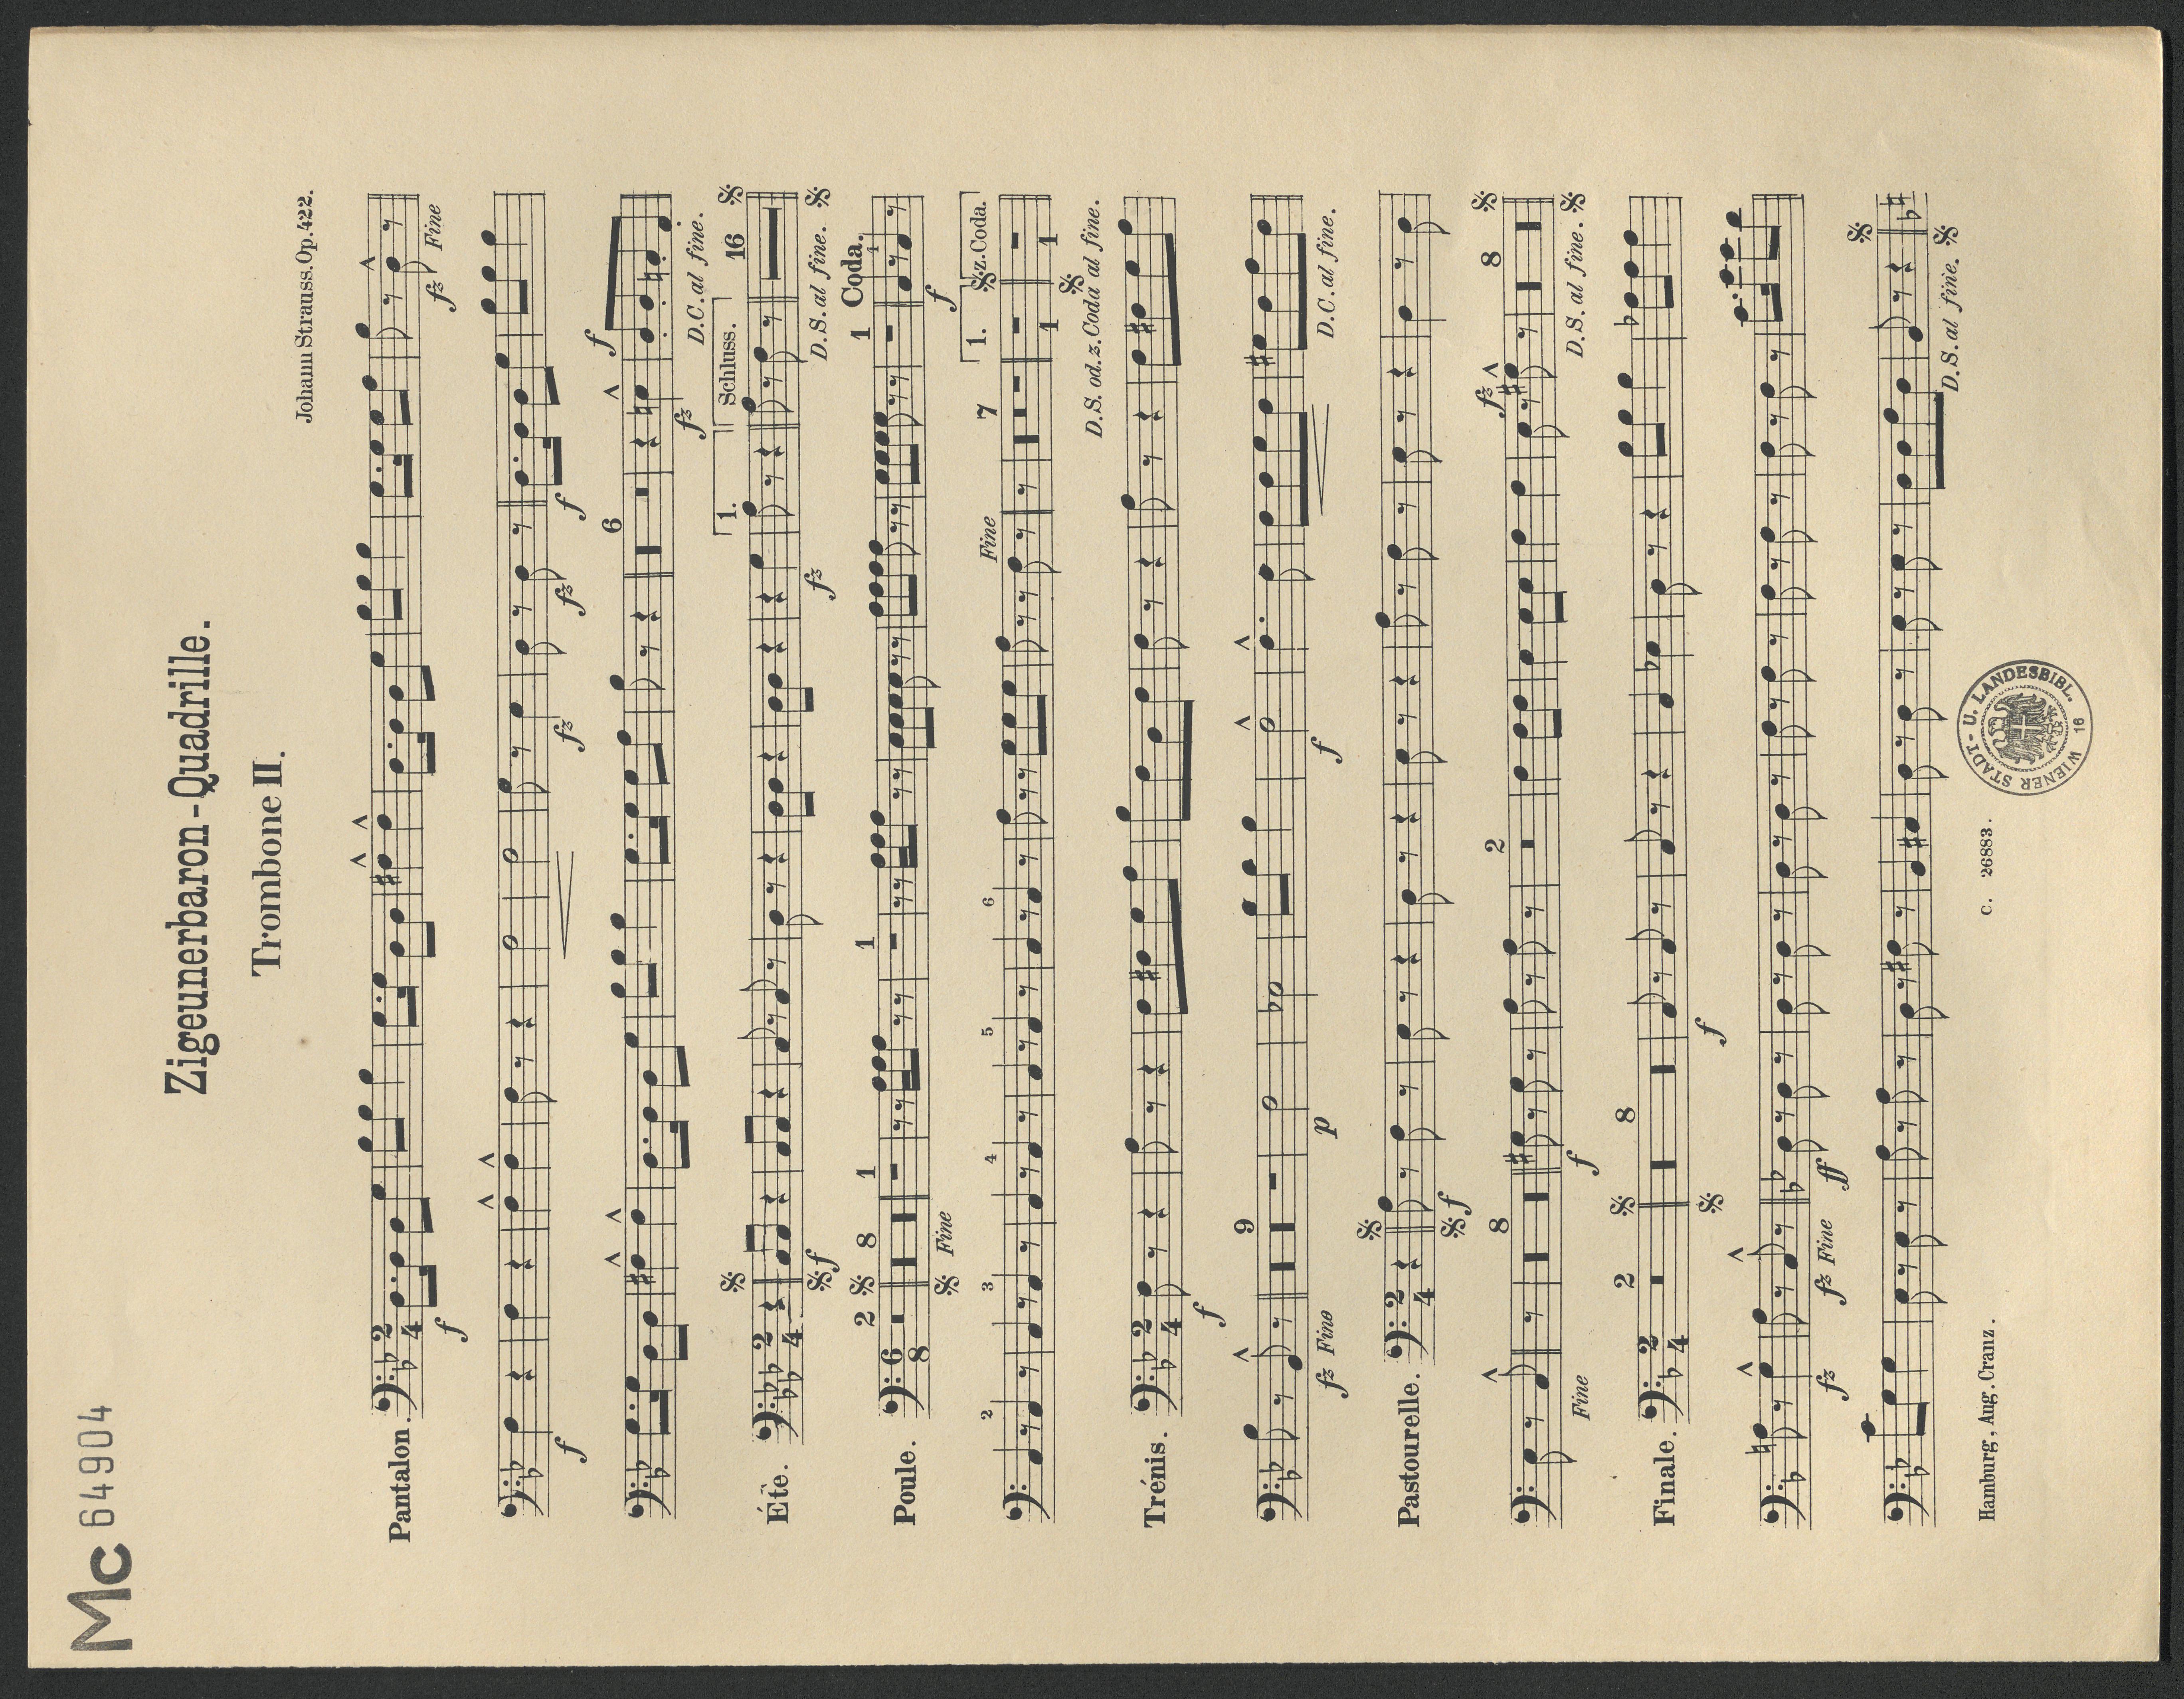 Mc 64904
Zigeunerbaron-Quadrille.
Trombone II.
Johann Strauss. Op. 422.
Pantalon.
2
4
f
fz
Fine
f
fz
fz
f
6
fz
f
D.C. al fine.
Été.
2
4
f
fz
1.
Schluss.
16
D.S. al fine.
Poule.
6
8
2
8
Fine
1
1
1
Coda.
4
f
2
3
4
5
6
Fine
7
1.
z. Coda.
1
1
D.S. od. z. Coda al fine.
Trénis.
2
4
f
fz Fine
9
p
f
D.C. al fine.
Pastourelle.
2
4
f
Fine
8
f
2
fz
8
D.S. al fine.
Finale.
2
4
2
8
f
fz
fz Fine
ff
D.S. al fine.
Hamburg, Aug. Cranz.
C. 26883.
WIENER STADT- U. LANDESBIBL.
16